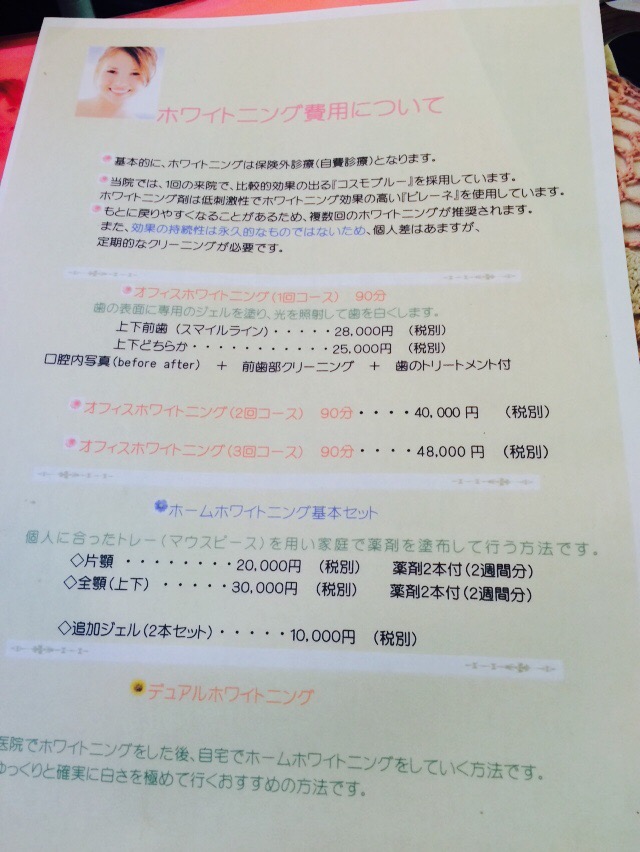 ホワイトニング費用について
基本的に、ホワイトニングは保険外診療(自費診療)となります。
当院では、1回の来院で、比較的効果の出る『コスモブルー』を採用しています。
ホワイトニング剤は低刺激性でホワイトニング効果の高い『ピレーネ』を使用しています。
もとに戻りやすくなることがあるため、複数回のホワイトニングが推奨されます。
また、効果の持続性は永久的なものではないため、個人差はあますが、
定期的なクリーニングが必要です。
オフィスホワイトニング(1回コース) 90分
歯の表面に専用のジェルを塗り、光を照射して歯を白くします。
上下前歯 (スマイルライン)・・・・・28,000円 (税別)
上下どちらか・・・・・・・・・・・25,000円 (税別)
口腔内写真(before after) + 前歯部クリーニング + 歯のトリートメント付
オフィスホワイトニング(2回コース) 90分・・・・40,000円 (税別)
オフィスホワイトニング(3回コース) 90分・・・・48,000円 (税別)
ホームホワイトニング基本セット
個人に合ったトレー(マウスピース)を用い家庭で薬剤を塗布して行う方法です。
◇片顎 ・・・・・・・・20,000円 (税別) 薬剤2本付(2週間分)
◇全顎(上下) ・・・・・30,000円 (税別) 薬剤2本付(2週間分)
◇追加ジェル(2本セット)・・・・・10,000円 (税別)
デュアルホワイトニング
医院でホワイトニングをした後、自宅でホームホワイトニングをしていく方法です。
ゆっくりと確実に白さを極めて行くおすすめの方法です。